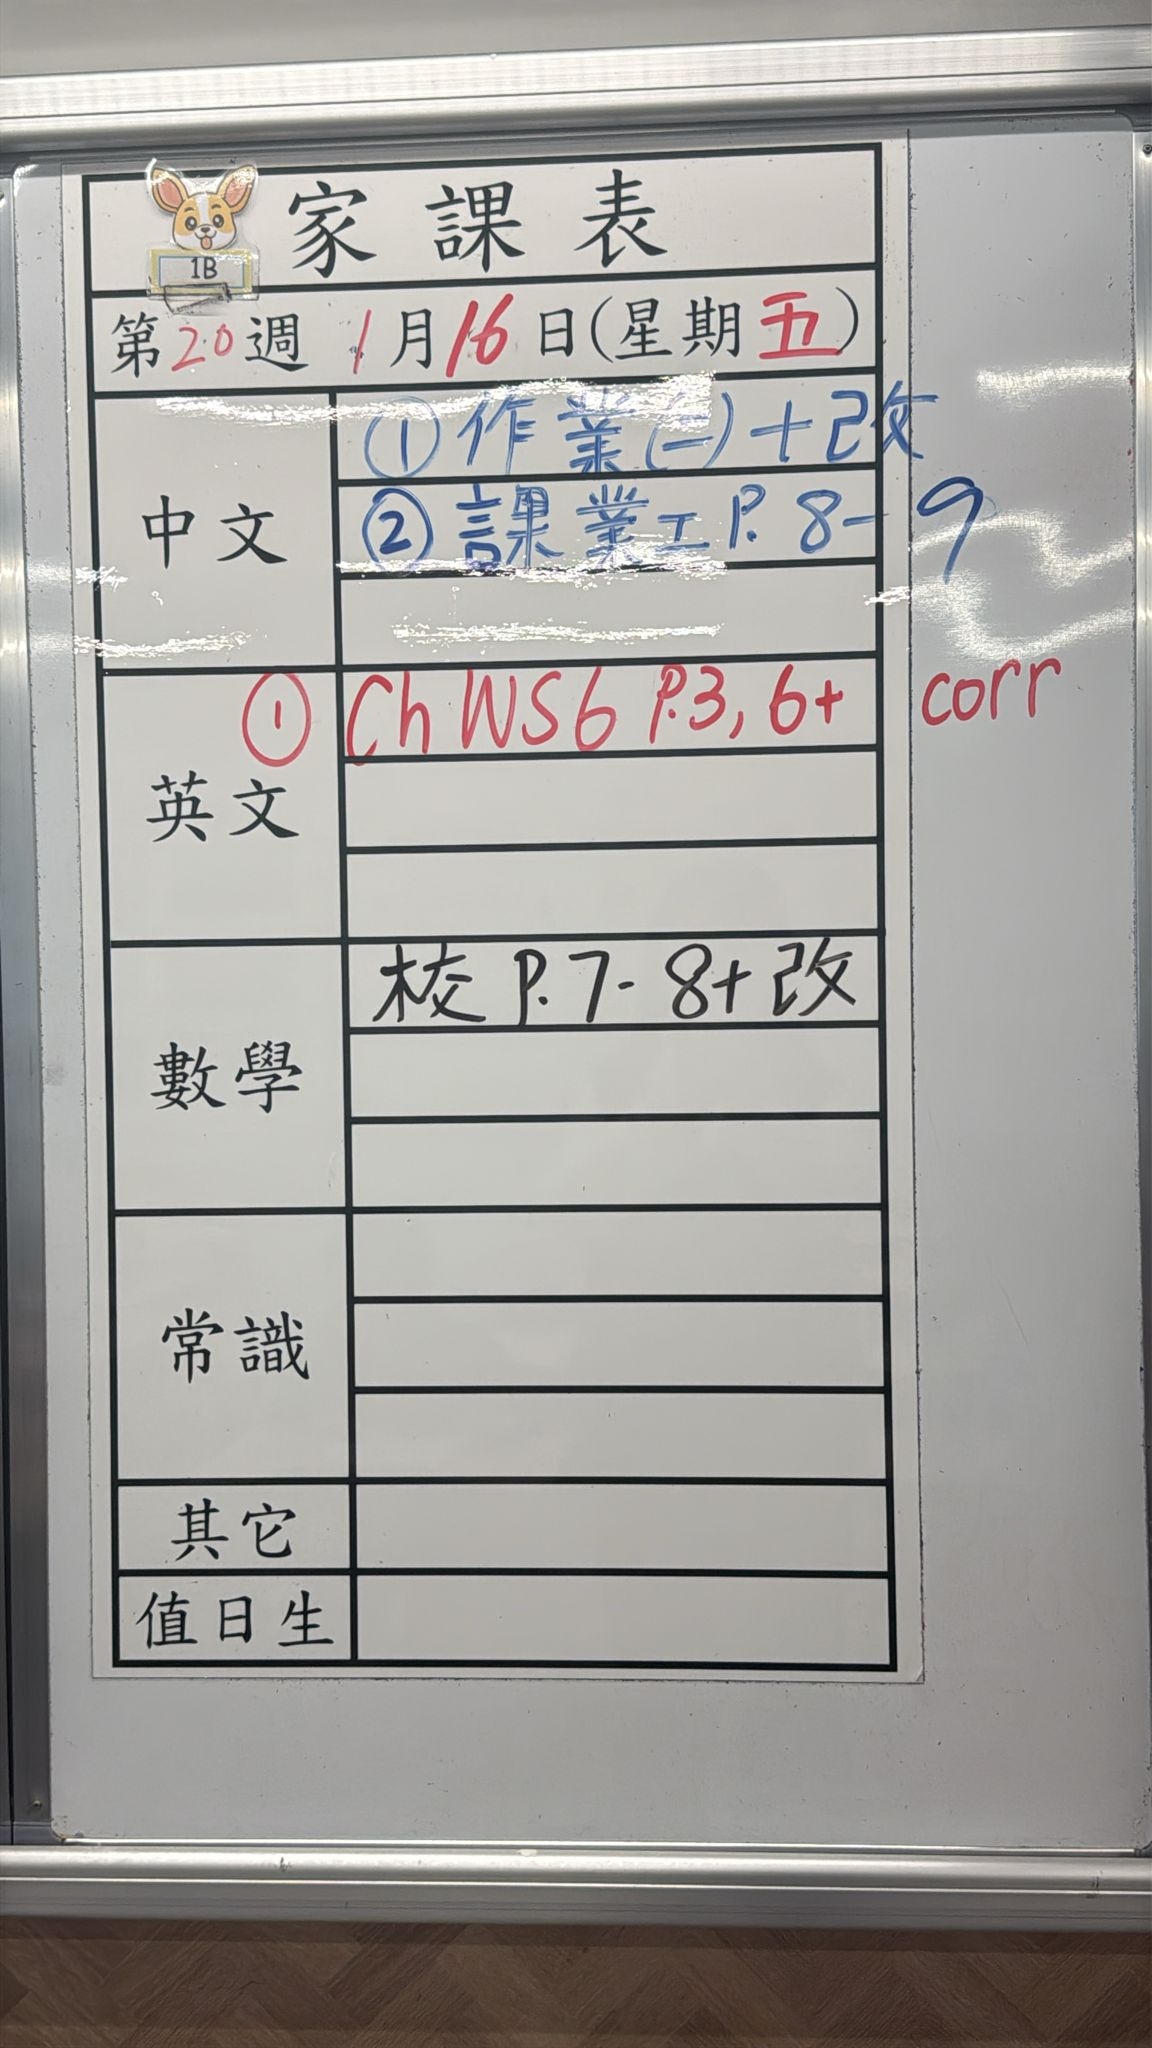 家課表
1B
第20週 1月16日(星期五)
中文
①作業(一)+改
②課業工P.8-9
英文
①Ch WS6 P.3, 6+ corr
數學
校P.7-8+改
常識
其它
值日生